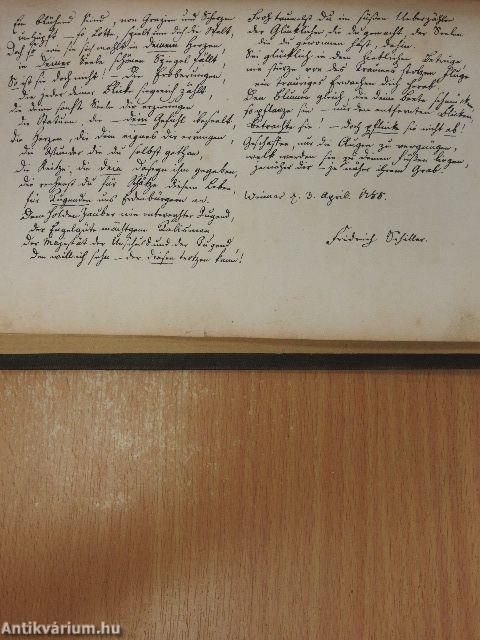 Ein blühend Kind, von Grazien und Scherzen
umhüpft – so, Lotte, spielt um dich die Welt,
Doch so, wie sie sich mahlt in deinem Herzen,
in deiner Seele schönen Spiegel fällt,
So ist sie doch nicht! – Die Eroberungen,
die jeder deiner Blicke siegreich zählt,
die deine sanfte Seele dir erzwungen,
die Statuen, die – dein Gefühl beseelt,
die Herzen, die dein eignes dir errungen,
die Wunder die du selbst gethan,
die Reitze, die dein Daseyn ihm gegeben,
die rechnest du für Schätze diesem Leben,
für Tugenden uns Erdenbürgern an.
Dem holden Zauber nie entweyhter Jugend,
der Engelgüte mächtgem Talisman
der Majestät der Unschuld und der Tugend
Den will ich sehn – der diesen trotzen kann!
Froh taumelst du im süßen Ueberzählen
der Glücklichen die du gemacht, der Seelen
die du gewonnen hast, dahin.
Sey glücklich in dem lieblichen Betruge,
nie stürze von des Traumes stolzem Fluge
ein trauriges Erwachen dich herab.
Den Blumen gleich, die deine Beete schmücken,
so pflanze sie – nur den entfernten Blicken,
betrachte sie! – doch pflücke sie nicht ab!
Geschaffen, nur die Augen zu vergnügen,
welk werden sie zu deinen Füßen liegen,
je näher dir – je näher ihrem Grab.
Weimar d. 3. April. 1788.
Fridrich Schiller.
Antikvárium.hu